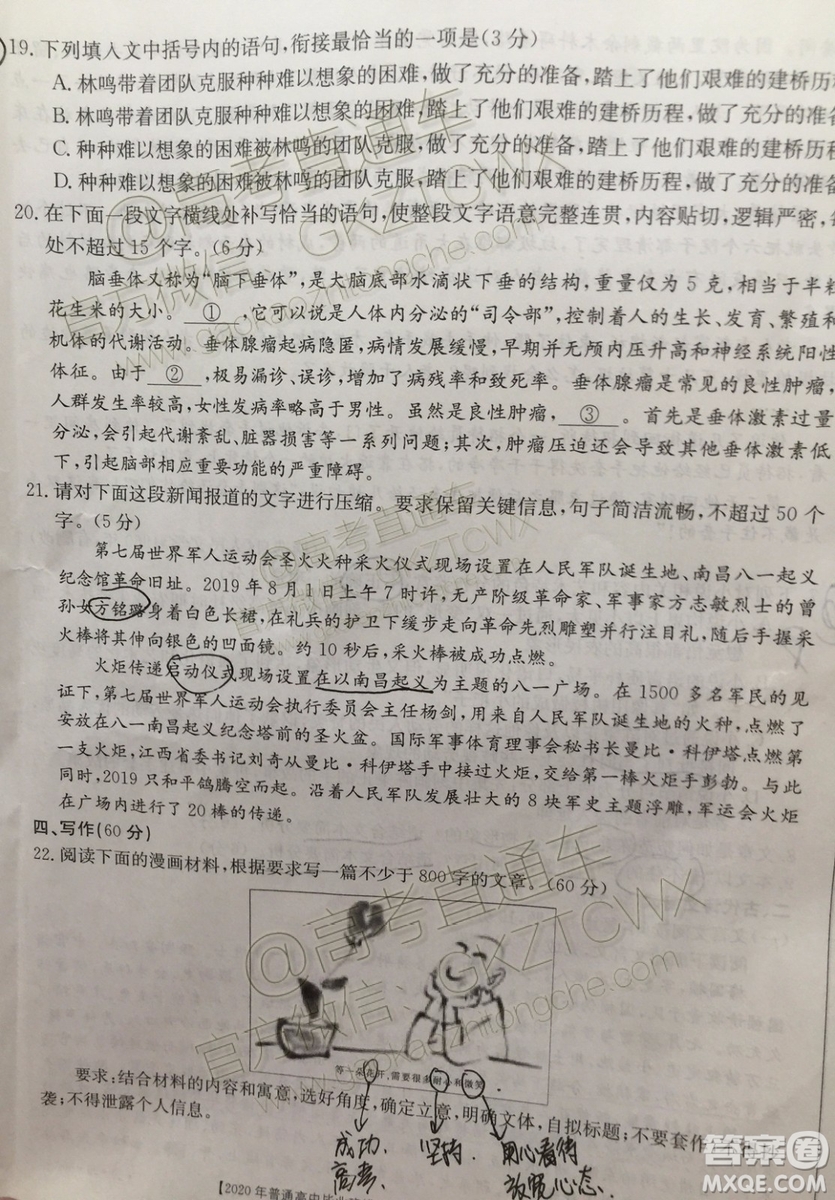 19. 下列填入文中括号内的语句,衔接最恰当的一项是(3 分)
A. 林鸣带着团队克服种种难以想象的困难,做了充分的准备,踏上了他们艰难的建桥历程
B. 林鸣带着团队克服种种难以想象的困难,踏上了他们艰难的建桥历程,做了充分的准备,
C. 种种难以想象的困难被林鸣的团队克服,做了充分的准备,踏上了他们艰难的建桥历程
D. 种种难以想象的困难被林鸣的团队克服,踏上了他们艰难的建桥历程,做了充分的准备,
20. 在下面一段文字横线处补写恰当的语句,使整段文字语意完整连贯,内容贴切,逻辑严密,每
处不超过 15 个字。(6 分)
脑垂体又称为“脑下垂体”,是大脑底部水滴状下垂的结构,重量仅为 5 克,相当于半粒
花生米的大小。 ① ,它可以说是人体内分泌的“司令部”,控制着人的生长、发育、繁殖和
机体的代谢活动。垂体腺瘤起病隐匿,病情发展缓慢,早期并无颅内压升高和神经系统阳性
体征。由于 ② ,极易漏诊、误诊,增加了病残率和致死率。垂体腺瘤是常见的良性肿瘤,
人群发生率较高,女性发病率略高于男性。虽然是良性肿瘤, ③ 。首先是垂体激素过量
分泌,会引起代谢紊乱、脏器损害等一系列问题;其次,肿瘤压迫还会导致其他垂体激素低
下,引起脑部相应重要功能的严重障碍。
21. 请对下面这段新闻报道的文字进行压缩。要求保留关键信息,句子简洁流畅,不超过 50 个
字。(5 分)
第七届世界军人运动会圣火火种采火仪式现场设置在人民军队诞生地、南昌八一起义
纪念馆革命旧址。2019 年 8 月 1 日上午 7 时许,无产阶级革命家、军事家方志敏烈士的曾
孙女方铭璐身着白色长裙,在礼兵的护卫下缓步走向革命先烈雕塑并行注目礼,随后手握采
火棒将其伸向银色的凹面镜。约 10 秒后,采火棒被成功点燃。
火炬传递启动仪式现场设置在以南昌起义为主题的八一广场。在 1500 多名军民的见
证下,第七届世界军人运动会执行委员会主任杨剑,用来自人民军队诞生地的火种,点燃了
安放在八一南昌起义纪念塔前的圣火盆。国际军事体育理事会秘书长曼比·科伊塔点燃第
一支火炬,江西省委书记刘奇从曼比·科伊塔手中接过火炬,交给第一棒火炬手彭勃。与此
同时,2019 只和平鸽腾空而起。沿着人民军队发展壮大的 8 块军史主题浮雕,军运会火炬
在广场内进行了 20 棒的传递。
四、写作(60 分)
22. 阅读下面的漫画材料,根据要求写一篇不少于 800 字的文章。(60 分)
等一朵花开,需要很多耐心和微笑
要求:结合材料的内容和寓意,选好角度,确定立意,明确文体,自拟标题;不要套作,不得抄
袭;不得泄露个人信息。
成功、 坚持、 用心看待
高考、 放宽心态.
【2020 年普通高中毕业
@高考直通车
官方微信:GKZTCWX
www.gaokaozhitongche.com
答案圈